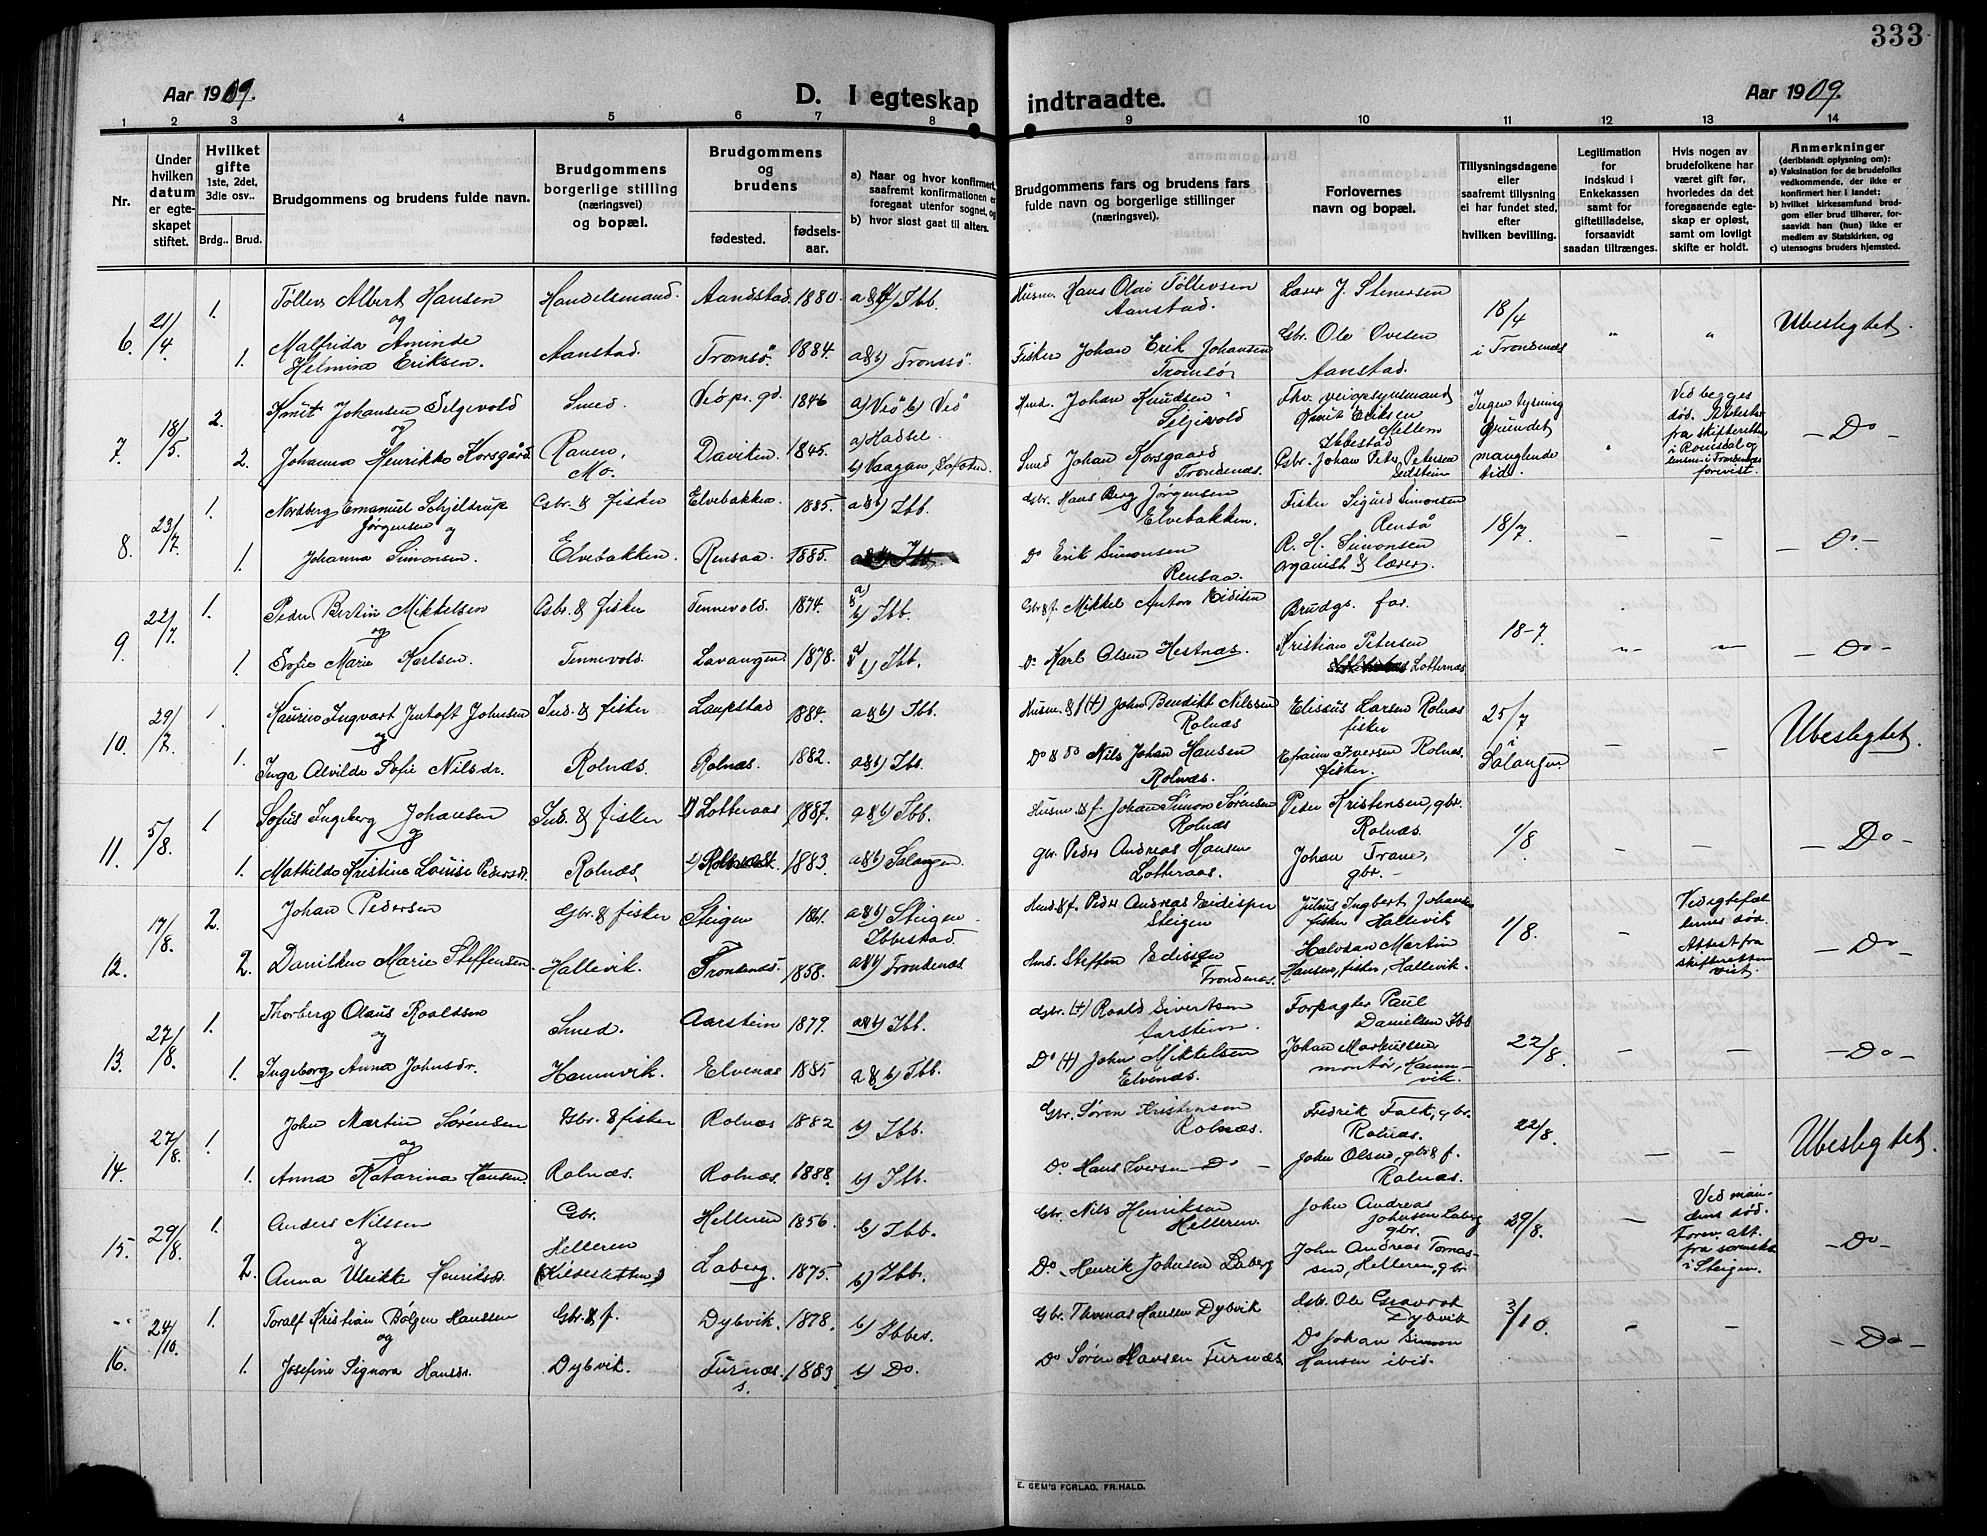 333
Aar 1909.
D. I egteskap indtraadte.
Aar 1909.
1 2 3 4 5 6 7 8 9 10 11 12 13 14
Nr.
Under hvilken datum er egteskapet stiftet.
Hvilket gifte
1ste, 2det, 3die osv..
Brdg.. Brud.
Brudgommens og brudens fulde navn.
Brudgommens borgerlige stilling (næringsvei) og bopæl.
Brudgommens og brudens
fødested.
fødselsaar.
a) Naar og hvor konfirmert, saafremt konfirmationen er foregaat utenfor sognet, og
b) hvor sidst gaat til alters.
Brudgommens fars og brudens fars fulde navn og borgerlige stillinger (næringsvei).
Forlovernes navn og bopæl.
Tillysningsdagene eller saafremt tillysning ei har fundet sted, efter hvilken bevilling.
Legitimation for Indskud i Enkekassen samt for giftetilladelse, forsaavidt saadan tiltrænges.
Hvis nogen av brudefolkene har været gift før, hvorledes da det foregaaende egteskap er opløst, samt om lovligt skifte er holdt.
Anmerkninger
(deriblandt oplysning om):
a) Vaksination for de brudefolks vedkommende, der ikke er konfirmert her i landet;
b) hvilket kirkesamfund brudgom eller brud tilhører, forsaavidt han (hun) ikke er medlem av Statskirken, og
c) utensogns bruders hjemsted.
6. 21/4 1. Tøllev Albert Hansen Handelsmand. Aandstad. 1880. a & b) Ibb. Husm. Hans Olai Tøllevsen Aanstad. Lærer J. Stenersen 18/4 i Trondenæs " " Ubeslegtet.
og
1. Malfrida Aminde Helmina Eriksen. Aanstad. Tromsø. 1884. a & b) Tromsø. Fisker Johan Erik Johansen Tromsø Gbr. Ole Ovesen Aanstad.
7. 18/5 2. Knut Johansen Selgevold Smed. Veø pr. gd. 1846 a) Veø b) Veø Hmd. Johan Knudsen Seljevold Fhv. veiopsynsmand Knut Eriksen Mellem Ibbestad Ingen lysning grundet manglende tid. Ved begges død. Attester fra skifteretten i Romsdal og forevist. — Do —
og
2. Johanna Henrikke Korsgård. Ranen, Mo. Daviken. 1845. a) Hadsel. b) Vaagan, Lofoten. Smed Johan Korsgaard Trondenæs. Gbr. Johan Peter Petersen
8. 23/7. 1. Nordberg Emanuel Schjeldrup Jørgensen og Gsbr. & fisker Elvebakken 1885. a & b) Ibb. Gbr. Hans Berg Jørgensen Elvebakken. Fisker Sigurd Simonsen Renså 18/7 — — — Do. —
1. Johanna Simonsen. Elvebakken. Rensaa. 1885. Do Erik Simonsen Rensaa. R. H. Simonsen organist & lærer.
9 22/7. 1. Peder Bertin Mikkelsen Gsbr. & fisker Tennevold. 1874. a) & b) Ibb. Gbr & f. Mikkel Anton Brudgs. far. 18-7 — Do —
og
1. Sofie Marie Karlsen. Tennevold. Lavangen. 1878. a) & b) Ibb. Do Karl Olsen Hestnæs. Kristian Petersen Lotternæs
10. 29/7. 1. Ingvart Jentoft Johnsen Ind. & fisker Laupstad 1884. a & b) Ibb. Husm. & f (+) John Benditt Nilssen Rolnæs Eliseus Larsen Rolnæs fisker 25/7 i Salangen — — Ubeslegtet.
og
1. Inga Alvilde Sofie Nilsdr. Rolnæs. Rolnæs. 1882. a & b) Ibb. Do & do Nils Johan Hansen Rolnæs. Efraim Iversen Rolnæs. fisker.
11. 5/8. 1 Sofus Ingeberg Johansen Ind. & fisker 1) Lotteraas 1887. a & b) Ibb. Husm. & f. Johan Simon Sørensen Rolnæs Peder Kristensen, gbr. Rolnæs. 1/8 — — — Do
og
1. Mathilde Kristine Lovise Pedersdr. Rolnæs. 1883. a & b) Salangen. Gbr. Peder Andreas Hansen Lotteraas. Johan Trane, gbr. —
12. 17/8. 2. Johan Pedersen Gbr. & fisker Steigen 1861. a & b) Steigen Ibbestad Hmd. & f. Peder Andreas Steigen Julius Ingbert Johansen fisker Hallevik 1/8. — Attest fra skifteretten vist. — Do
2. Danikke Marie Steffensen. Hallevik. Trondenæs. 1858. a & b) Trondenæs. Hmd. Steffen Trondenæs. Halvdan Martin Hansen, fisker, Hallevik.
13. 27/8. 1. Thorberg Olaus Roaldsen Smed. Aarstein 1879. a & b) Ibb. Gbr. (+) Roald Sivertsen Aarstein. Forpagter Paul Danielsen Ibb 22/8. — — — Do —
og
1. Ingeborg Anna Johnsdr. Hamnvik. Elvenæs 1885 a & b) Ibb. Do (+) John Mikkelsen Elvenæs. Johan Markussen montør, Hamnvik.
14. 27/8. 1. John Martin Sørensen Gbr. & fisker Rolnæs 1882 b) Ibb. Gbr. Søren Kristensen Rolnæs. Fredrik Falk, gbr. Rolnæs. 22/8. — — Ubeslegtet.
og
1. Anna Katarina Hansen. Rolnæs. Rolnæs. 1888. b) Ibb. Do Hans Iversen — Do — John Olsen, gbr & f. Rolnæs.
15. 29/8. 1. Anders Nilssen Gbr. Helleren 1856. b) Ibb. Gbr. Nils Henriksen Helleren. John Andreas Johnsen Laberg gbr. 29/8. — Ved mandens død. Forev. att. fra sorenskr. i Steigen. — Do —
og
2. Anna Ulrikke Henriksdr. Helleren Laberg. 1875. b) Ibb. Do. Henrik Johnsen Laberg John Andreas Tomassen, Helleren, gbr
16. 24/10. 1. Toralf Kristian Bølgen Hanssen Gbr. & f. Dybvik. 1878. b) Ibbes. Gbr. Thomas Hansen Dybvik Gbr. Ole Dybvik 3/10. — — — Do —
og
1. Josefine Signora Hansdr. Dybvik. Furnæs. 1883. b) Do. Do Søren Hansen Furnæs. Do Johan Simon Hansen ibid.
E. SEM'S FORLAG. FR.HALD.